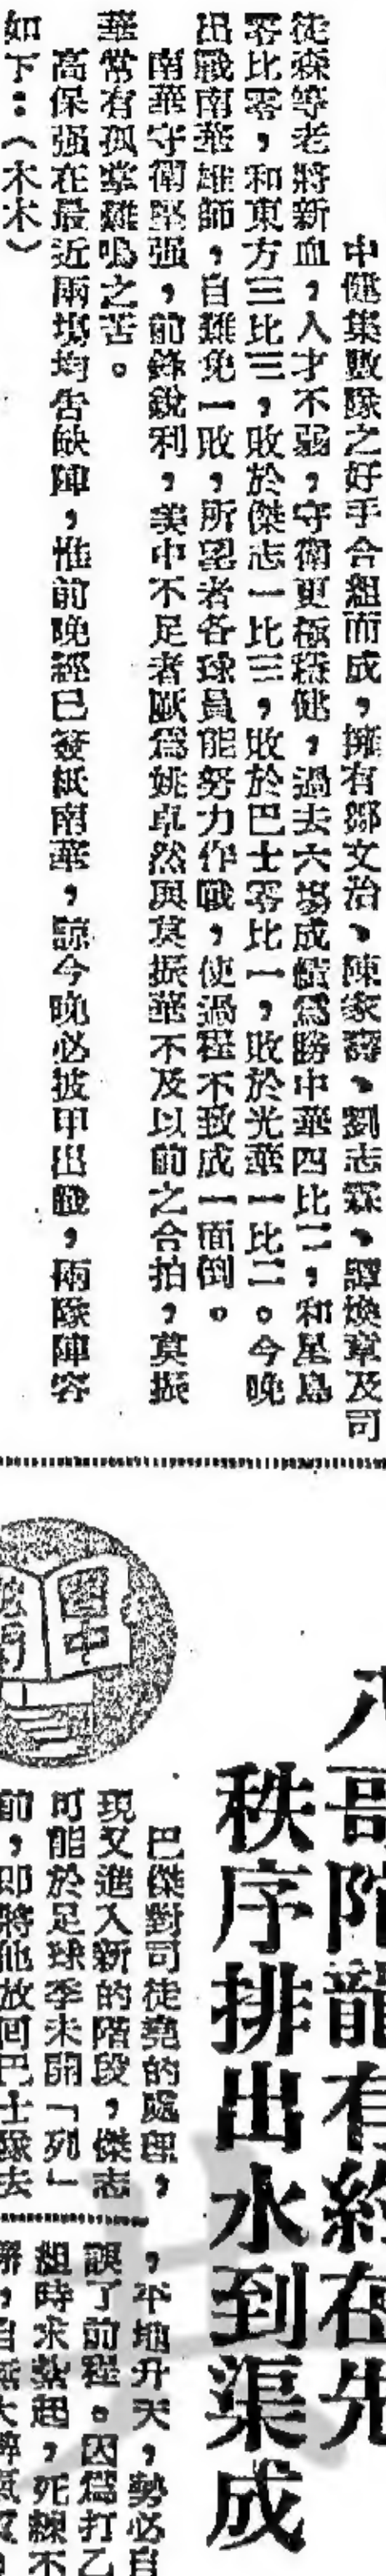 中健集數隊之好手合組而成，擁有鄒文治、陳家齊、劉志霖、譚煥章及司
徒森等老將新血，人才不弱，守衞更極穩健，過去六場成績爲勝中華四比二，和星島
零比零，和東方三比三，敗於傑志一比三，敗於巴士零比一，敗於光華一比二。今晚
出戰南華雄師，自難免一敗，所望者各球員能努力作戰，使過程不致成一面倒。
南華守衞堅强，前鋒銳利，美中不足者厥爲姚卓然與莫振華不及以前之合拍，莫振
華常有孤掌難鳴之苦。
高保强在最近兩塲均告缺陣，惟前晚經已簽紙南華，諒今晚必披甲出戰，兩隊陣容
如下：（木木）
哥陪龍有約在先
秩序排出水到渠成
國中
巴傑對司徒堯的處理，
現又進入新的階段，傑志
可能於足球季未開「列」
前，即將他放回巴士隊去
，平地升天，勢必自
誤了前程。因爲打乙
組時未紮起，死練不